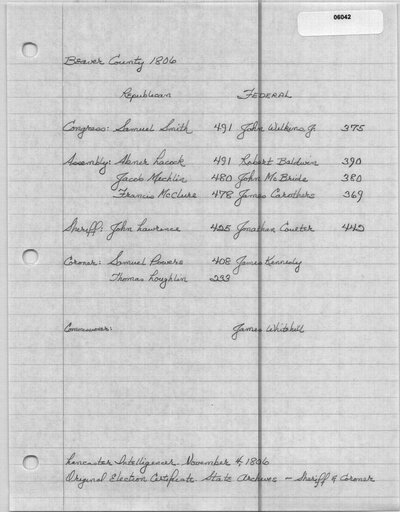 06042
Beaver County 1806
Republican FEDERAL
Congress: Samuel Smith 491 John Wilkins Jr. 375
Assembly: Abner Lacock 491 Robert Baldwin 390
Jacob Mechlin 480 John McBride 380
Francis McClure 478 James Carothers 369
Sheriff: John Lawrence 425 Jonathan Coulter 442
Coroner: Samuel Powers 408 James Kennedy
Thomas Loughlin 233
Commissioner: James Whitehill
Lancaster Intelligencer November 4, 1806
Original Election Certificate State Archives - Sheriff & Coroner